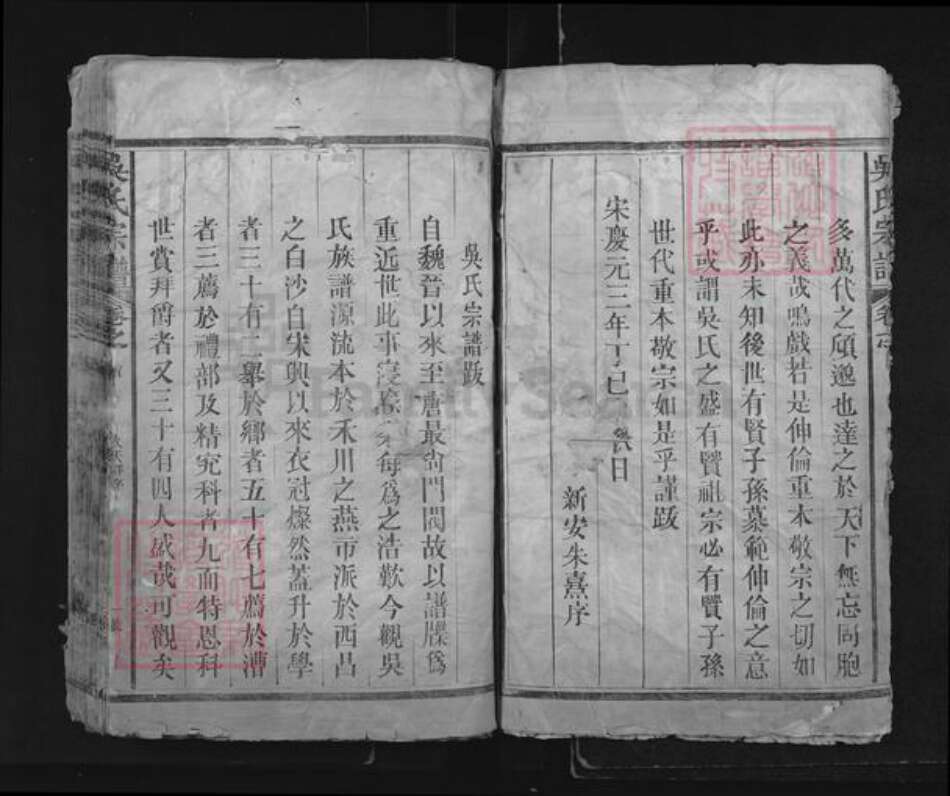 多萬代之頎邈也達之於天下無忘同胞
之義哉嗚戲若是伸倫重本敬宗之切如
此亦未知後世有賢子孫慕範伸倫之意
乎或謂吳氏之盛有賢祖宗必有賢子孫
世代重本敬宗如是乎謹跋
宋慶元三年丁巳 日
新安朱熹序
吳氏宗譜跋
自魏晉以來至唐最尙門閥故以譜牒爲
重近世此事寖 每爲之浩歎今觀吳
氏族譜源流本於禾川之燕市派於西昌
之白沙自宋興以來衣冠燦然蓋升於學
者三十有二舉於鄉者五十有七薦於漕
者三薦於禮部及精究科者九而特恩科
世賞拜爵者又三十有四人盛哉可觀矣
吳氏宗譜 卷之